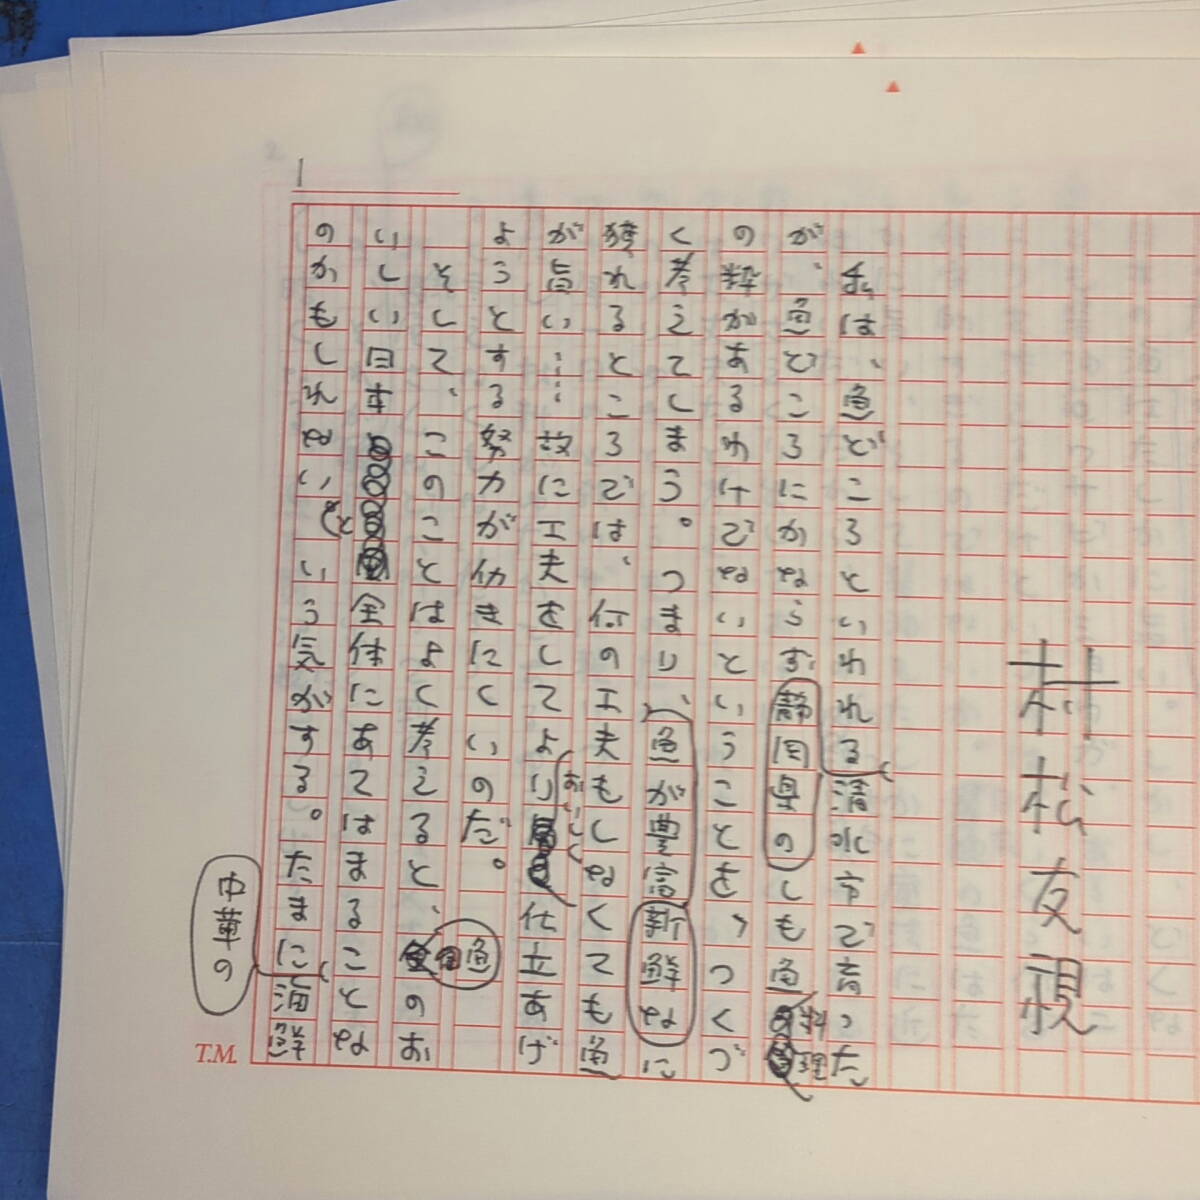 村松友視
私は、魚どころといわれる清水市で育った
静岡県の
が、魚どころにかならずしも魚料理
の粋があるわけでないということをつくづ
く考えてしまう。つまり、魚が豊富新鮮なに
獲れるところでは、何の工夫もしなくても魚
が旨い……故に工夫をしてよりおいしく仕立あげ
ようとする努力が働きにくいのだ。
魚
そして、このことはよく考えると、のお
いしい日本全体にあてはまることな
のかもしれないという気がする。たまに海鮮
中華の
1
T.M.